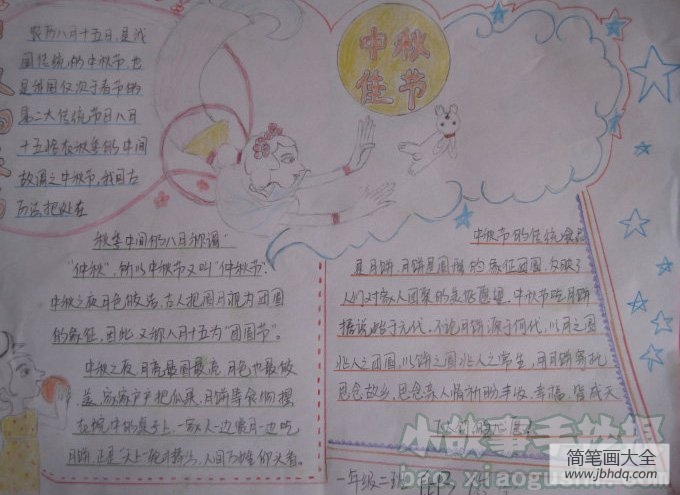 中秋
佳节
农历八月十五日,是我
国传统的中秋节,也
是我国仅次于春节的
第二大传统节日八月
十五恰在秋季的中间
故谓之中秋节,我国古
历法把处在
秋季中间的八月称谓"
"仲秋",所以中秋节又叫"仲秋节".
中秋之夜月色皎洁,古人把圆月视为团圆
的象征,因此,又称八月十五为"团圆节"。
中秋之夜,月亮最圆最亮,月色也最皎
洁,家家户户把瓜果、月饼等食物摆
在院中的桌子上,一家人一边赏月一边吃
月饼,正是"天上一轮
人间万
中秋节的传统食品
是月饼,月饼是圆形的,象征团圆,反映了
人们对家人团聚的美好愿望。中秋节吃月饼
据说始于元代,
以月之圆
兆人之团圆,以饼之圆兆人之常生,用月饼寄托
思念故乡,思念亲人
丰收、幸福,皆成天
下人们的心愿
一年级二班
小故事手抄报
bao.xiaogushi
简笔画大全
www.jbhdq.com